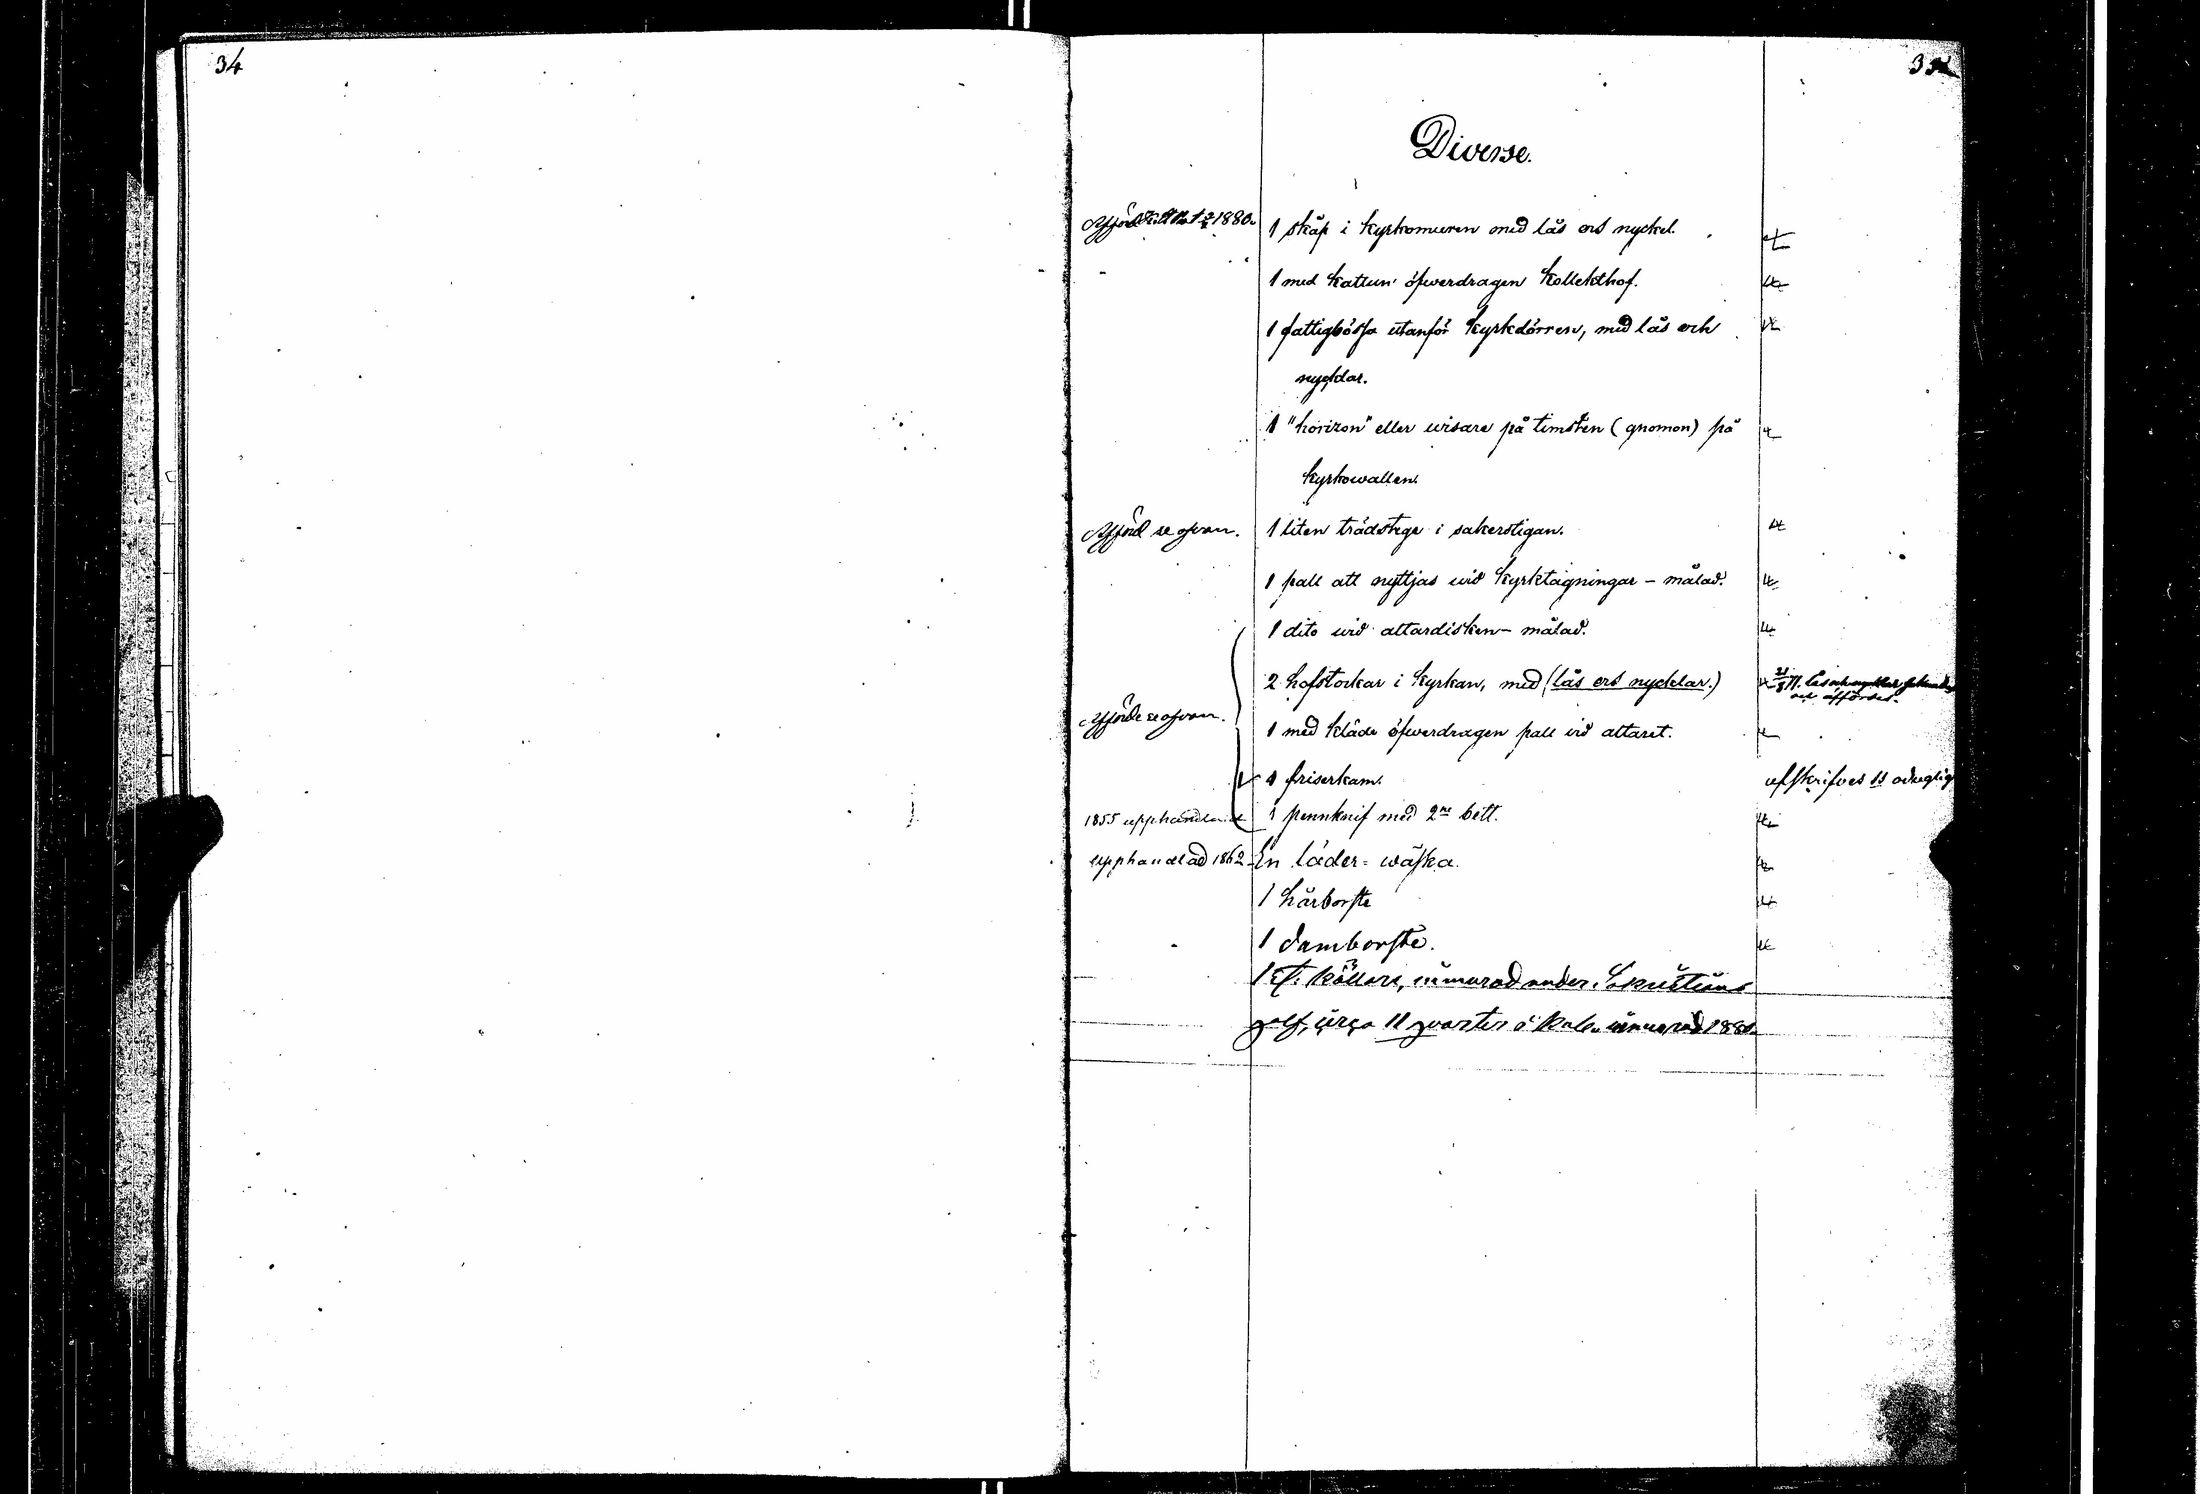 34
35
Diverse.
Afförd 1880.
1 skåp i kyrkomuren med lås och nyckel.
1 med kattun öfwerdragen kollekthof.
1 fattigbössa utanför kyrkdörren, med lås och
nycklar.
1 "horizon" eller wisare på timsten (gnomon) på
kyrkowallen.
Afförd se ofvan. 1 liten trädstege i sakerstigan.
1 pall att nyttjas wid kyrktagningar – målad.
1 dito wid altardisken – målad.
2 hofstockar i kyrkan, med (lås och nycklar.) lås och nycklar
och affördes.
Afförde se ofvan. 1 med kläde öfwerdragen pall wid altaret.
1 friserkam. afskrifves
1855 upphandlade 1 pennknif med 2ne bett.
upphandlad 1862 En läder-wäska.
1 hårborste
1 damborste.
källare, inmurad under Sakristians
golf, cirka 11 qvarter inmurad 1880.